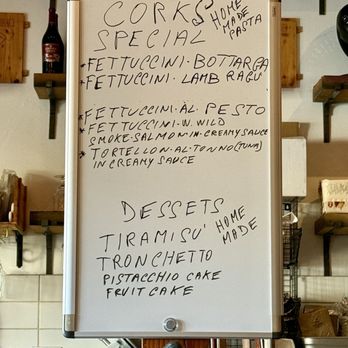 CORKS
HOME
MADE
PASTA
SPECIAL
*FETTUCCINI·BOTTARGA
*FETTUCCINI·LAMB RAGU'
*FETTUCCINI·AL·PESTO
*FETTUCCINI·W.WILD
SMOKE·SALMON·IN·CREAMY SAUCE
*TORTELLON·AL·TONNO(TUNA)
IN CREAMY SAUCE
DESSETS
HOME
MADE
TIRAMISU'
TRONCHETTO
PISTACCHIO CAKE
FRUIT CAKE